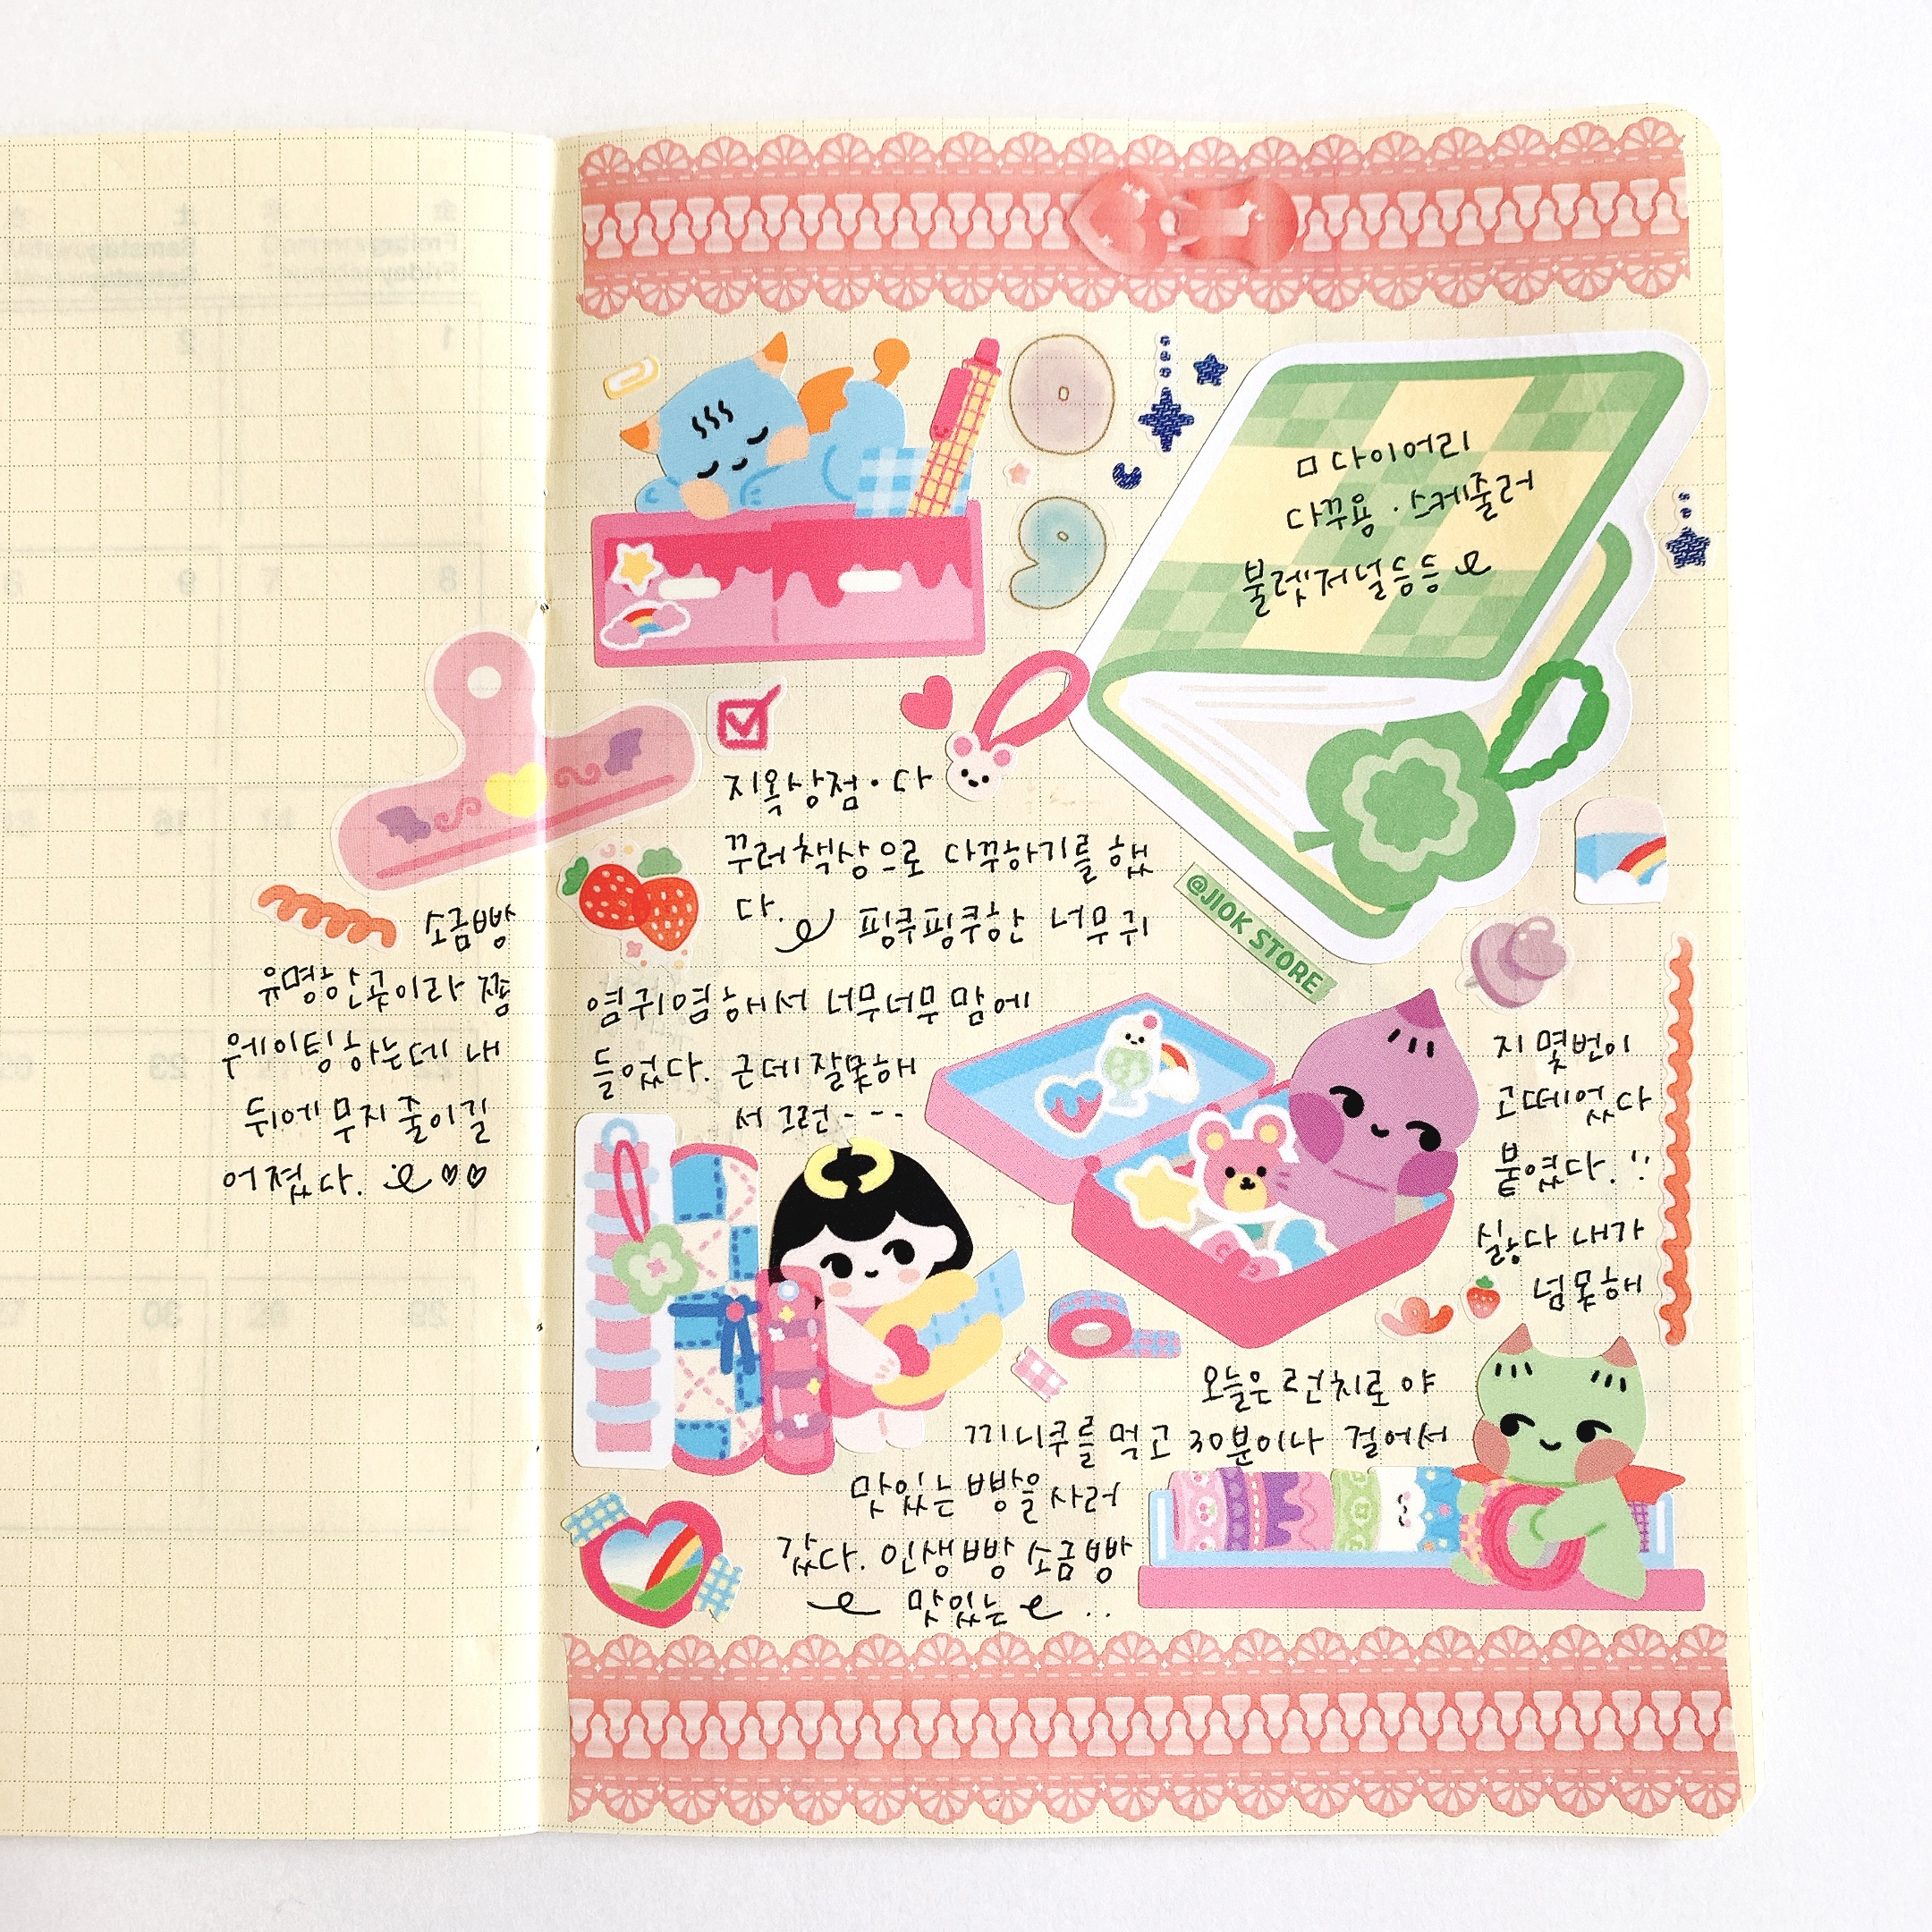 ㅁ 다이어리
다꾸용 · 스케줄러
불렛저널등등
지옥상점 · 다
꾸러책상으로 다꾸하기를 했
다. 핑쿠핑쿠한 너무귀
염귀염해서 너무너무맘에
들었다. 근데 잘못해
서 그런---
@JIOK STORE
지 몇번이
고떼었다
붙였다.
싫다 내가
넘못해
오늘은 런치로 야
끼니쿠를 먹고 30분이나 걸어서
맛있는 빵을 사러
갔다. 인생빵 소금빵
맛있는 ..
소금빵
유명한곳이라 쫌
웨이팅하는데 내
뒤에 무지 줄이길
어졌다.